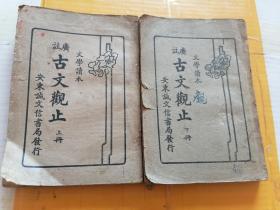 廣註
文學讀本
古文觀止
上冊
安東誠文信書局發行
廣註
文學讀本
古文觀止
下冊
安東誠文信書局發行